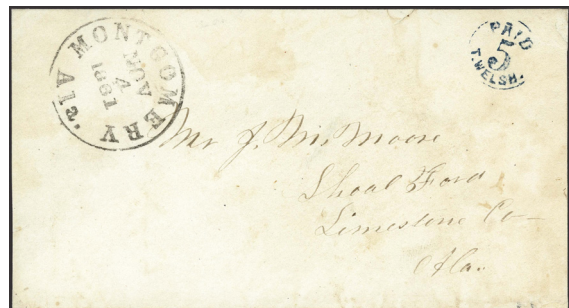 MONTGOMERY Ala.
NOV
4
1861
PAID
5
T. WELSH.
Mr J. M. Moore
Shoal Ford
Limestone Co
Ala.